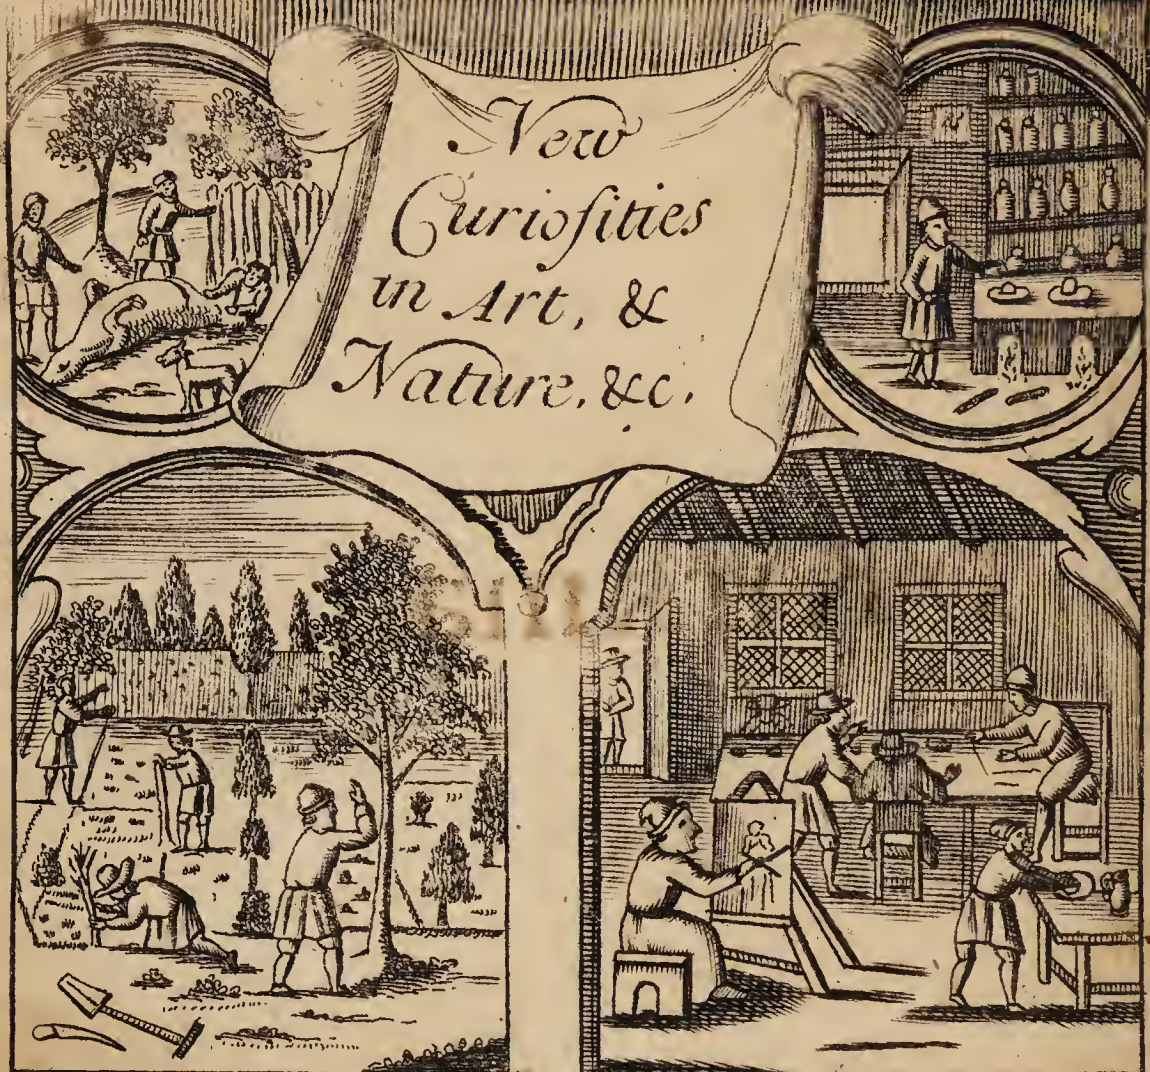 New
Curioſities
in Art, &
Nature, &c.